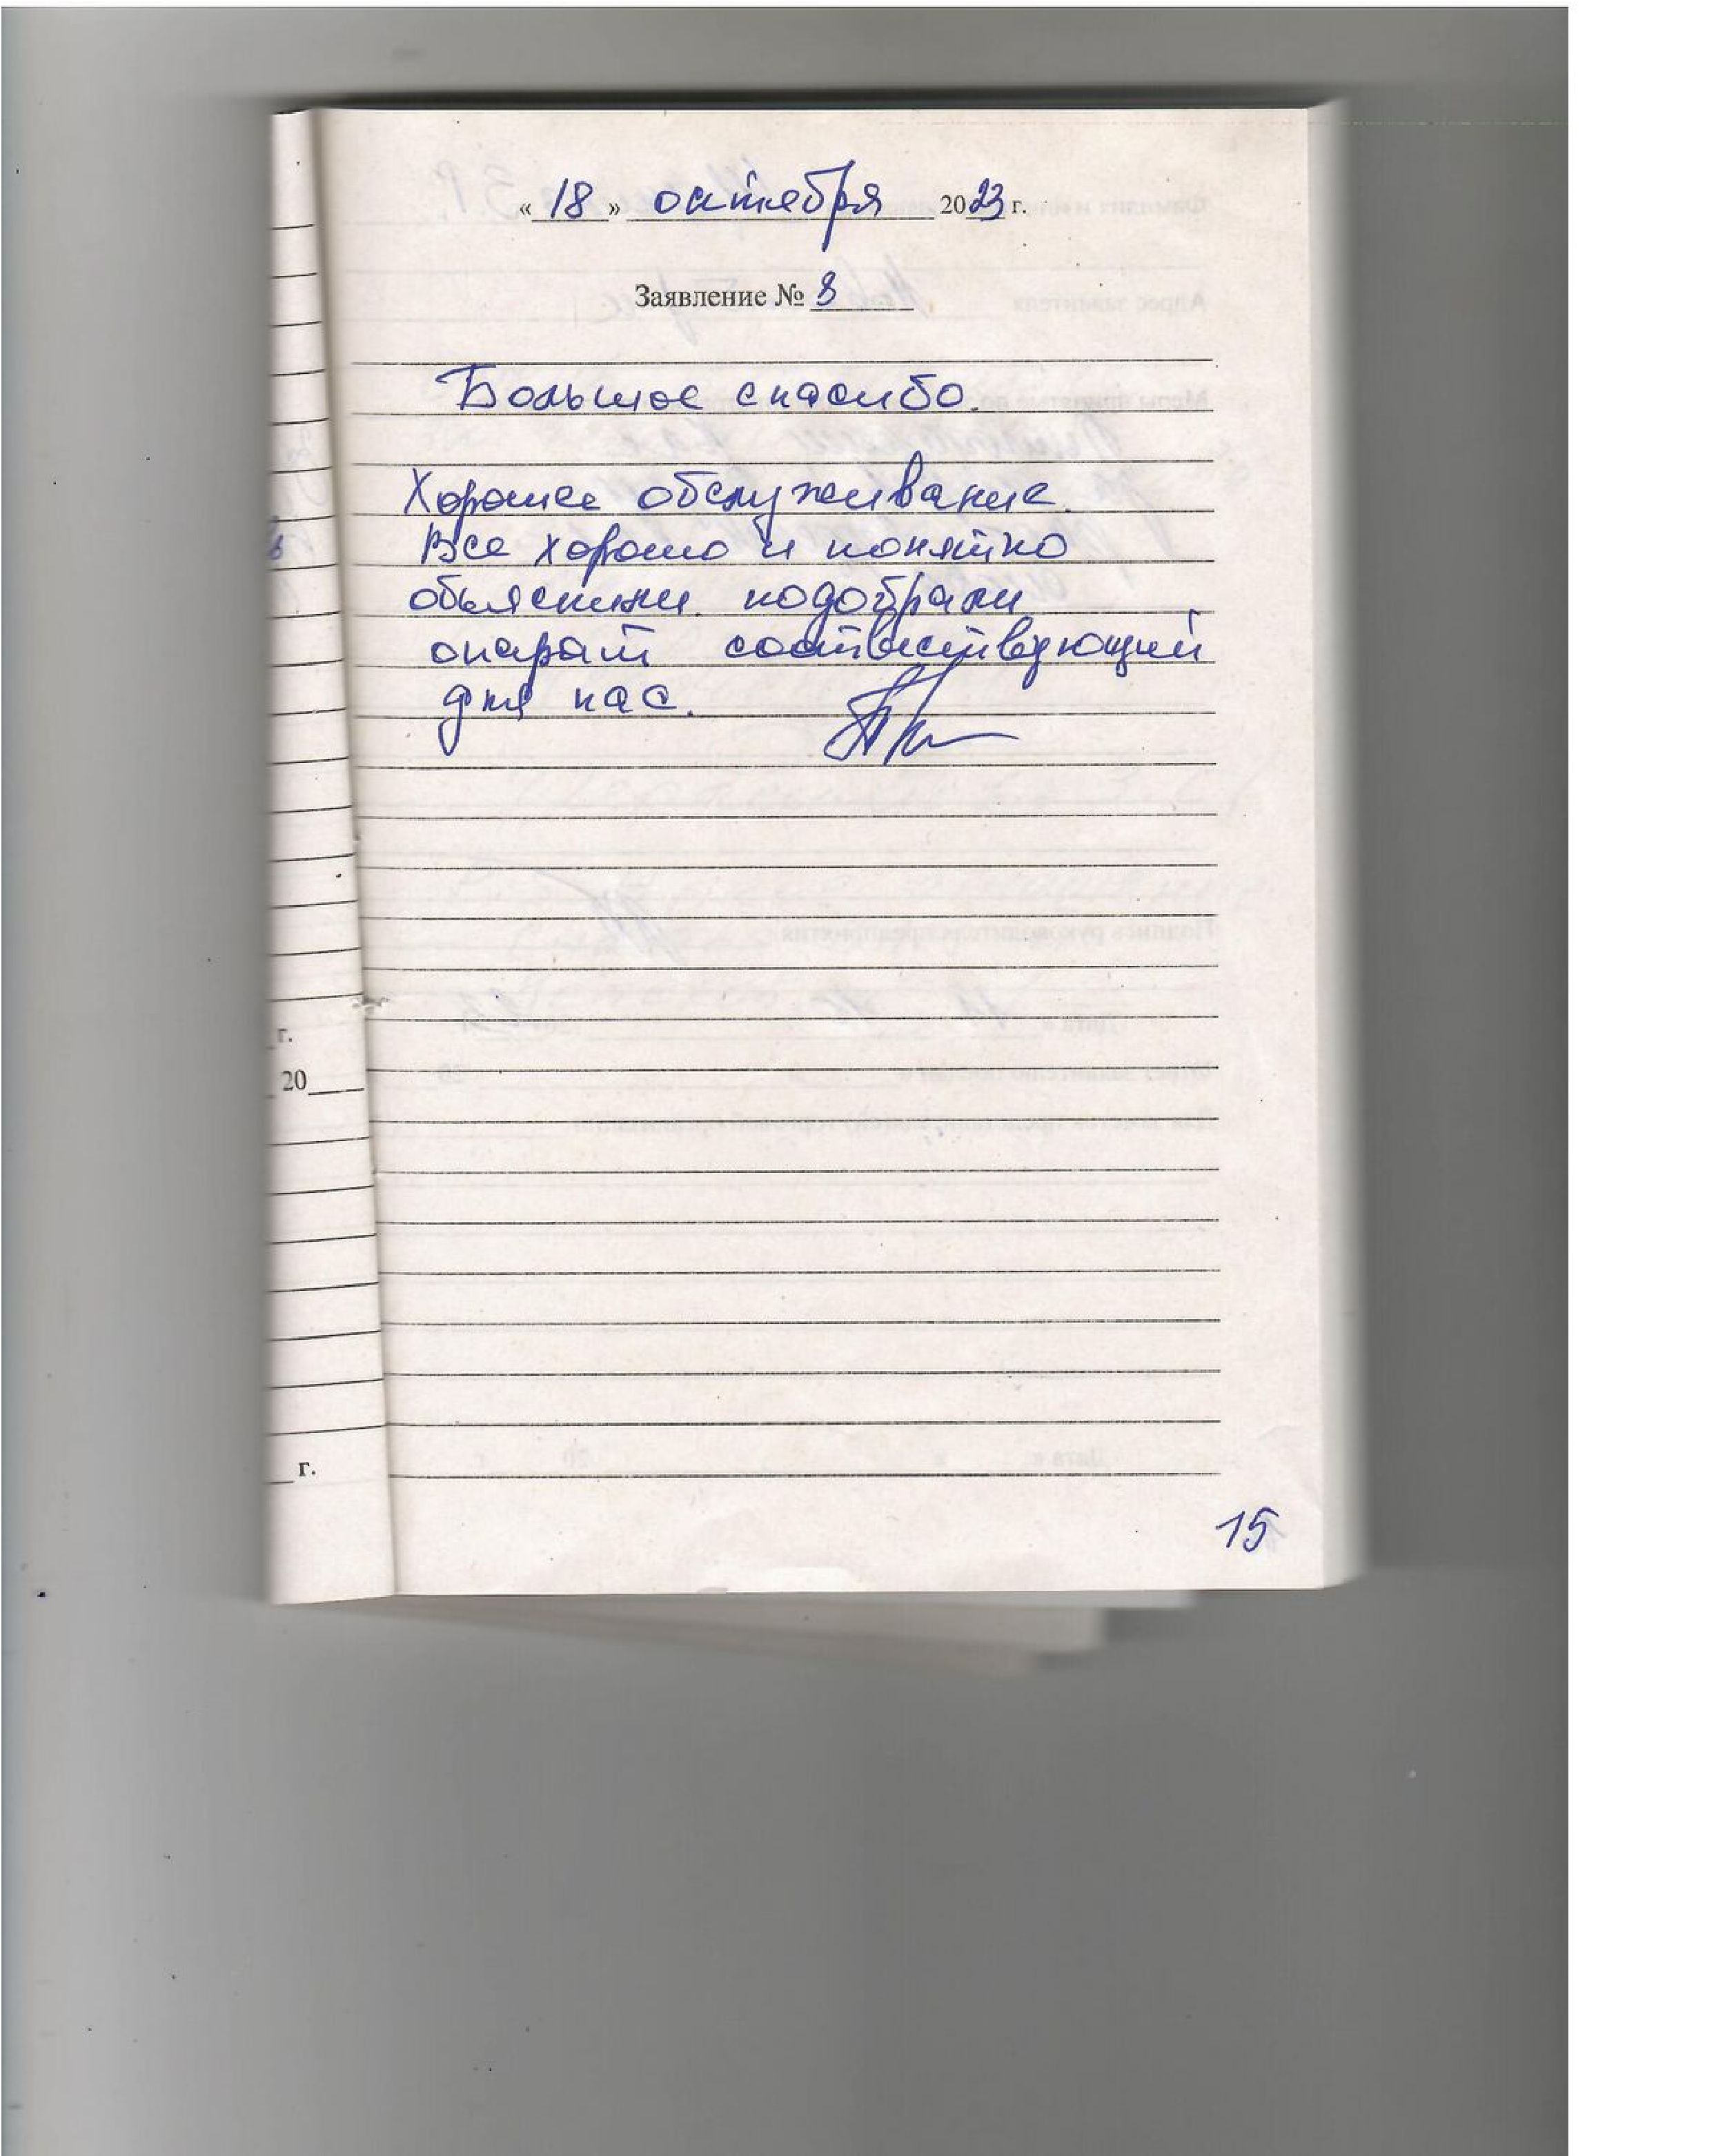 « 18 » октября 2023 г.
Заявление № 8
Большое спасибо.
Хорошее обслуживание.
Все хорошо и понятно
обьяснили. подобрали
опарат соотвествующий
для нас.
г.
20
г.
15